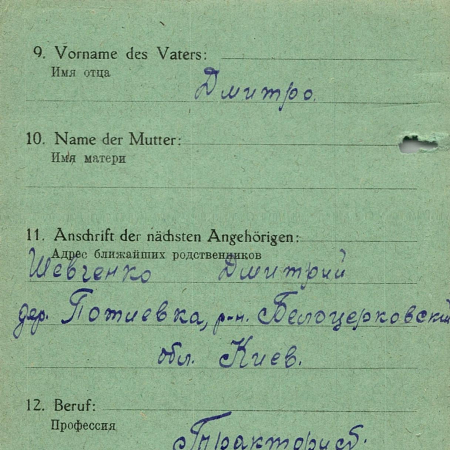 9. Vorname des Vaters:
Имя отца
Дмитро.
10. Name der Mutter:
Имя матери
11. Anschrift der nächsten Angehörigen:
Адрес ближайших родственников
Шевченко Дмитрий
дер. Потиевка, р-н. Белоцерковский
обл. Киев.
12. Beruf:
Профессия